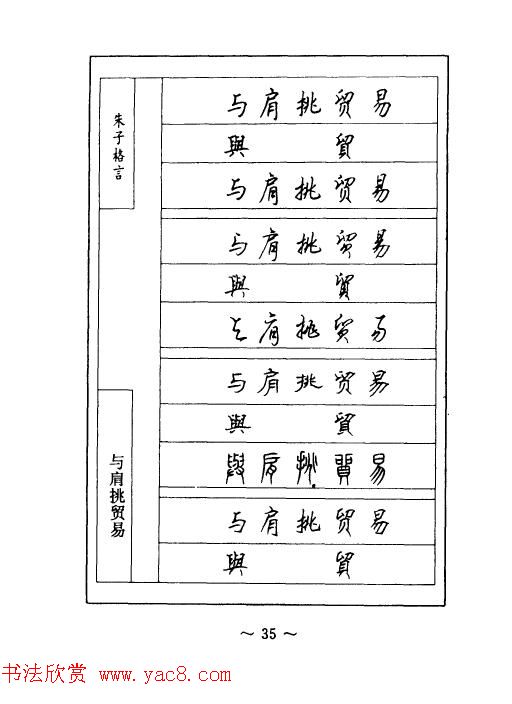 朱子格言
与肩挑贸易
與 貿
与肩挑贸易
与肩挑贸易
與 貿
与肩挑贸易
与肩挑贸易
與 貿
與肩挑貿易
与肩挑贸易
與 貿
与肩挑贸易
～ 35 ～
书法欣赏 www.yac8.com